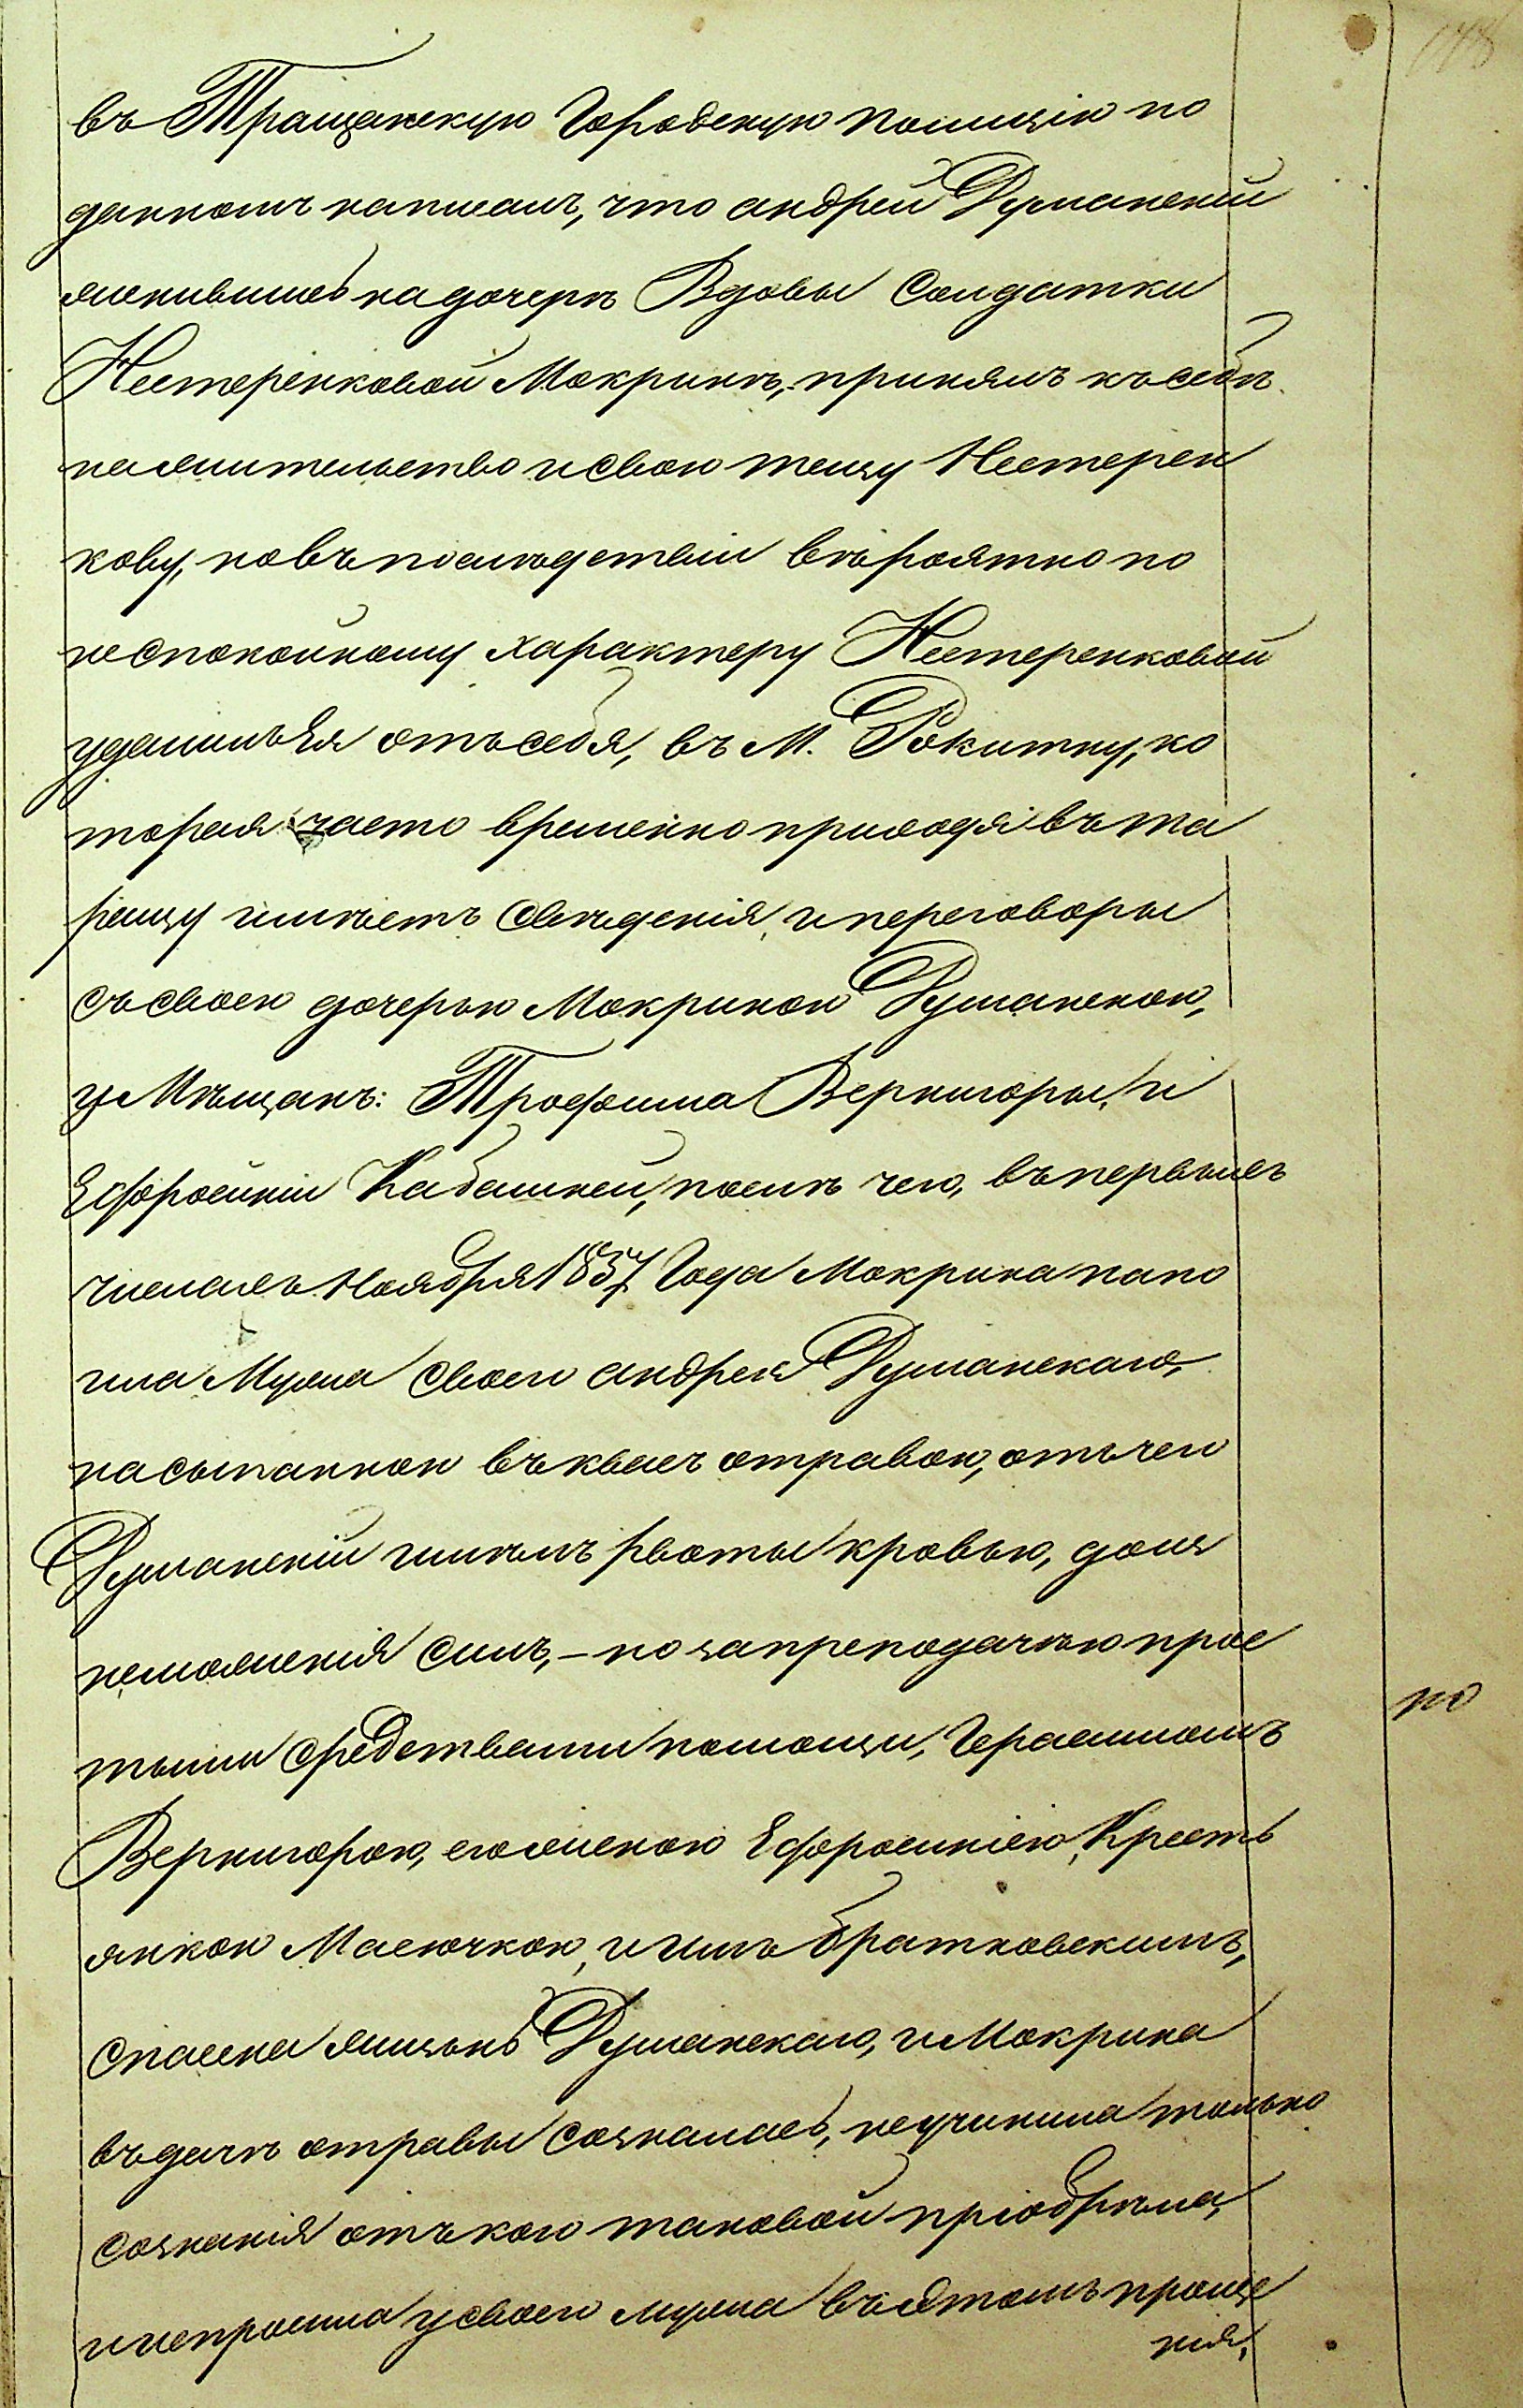 въ Тращанскую Городскую полицію по
данномъ написалъ, что андрей Думанскій
женившись на дочерѣ Вдовы Солдатки
Нестеренковой Мокринѣ, принялъ къ себѣ
на жительство и свою тещу Нестерен
кову, но въ последствіи вѣроятно по
неспокойному характеру Нестеренковой
удалилъ ея отъ себя, въ М. Рокитну, ко
торая часто временно приходя въ та
ращу имѣетъ свѣденія и переговоры
съ своею дочерью Мокриною Думанскою,
у Мѣщанъ: Трофима Вернигоры, и
Ефросиніи Кабашней, послѣ чего, въ первыхъ
числахъ Ноября 1857 Года Мокрина напо
ила Мужа своего андрея Думанскаго,
насыпанною въ квасъ отравою, отъ чего
Думанскій имѣлъ рвоты кровью, до из
неможенія силъ, – но за преподачею прос
тыми средствами помощи, Герасимомъ
Вернигорою, его женою Ефросиніею, Кресть
янкою Масючкою, и имъ братковскимъ,
спасена жизнь Думанскаго, и Мокрина
въ дачѣ отравы созналась, неучинила только
сознанія отъ кого таковой пріобрѣла,
и непросила у своего мужа въ этомъ проще
нія,
но